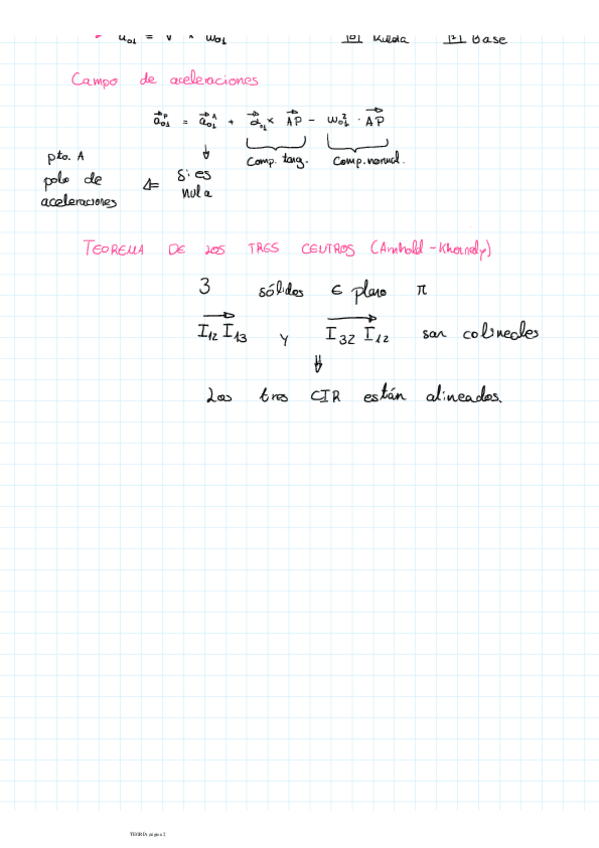 u₀₁ = V × ω₀₁ |0| Rueda |1| Base
Campo de aceleraciones
a⃗₀₁ᴾ = a⃗₀₁ᴬ + α⃗₀₁ × AP⃗ − ω₀₁² · AP⃗
Comp. tang. Comp. normal.
pto. A
polo de
aceleraciones ⇐ Si es
nula
TEOREMA DE LOS TRES CENTROS (Arnhold-Khennedy)
3 sólidos ∈ plano π
I₁₂ I₁₃ y I₃₂ I₁₂ son colineales
⇓
Los tres CIR están alineados.
TEORÍA página 2